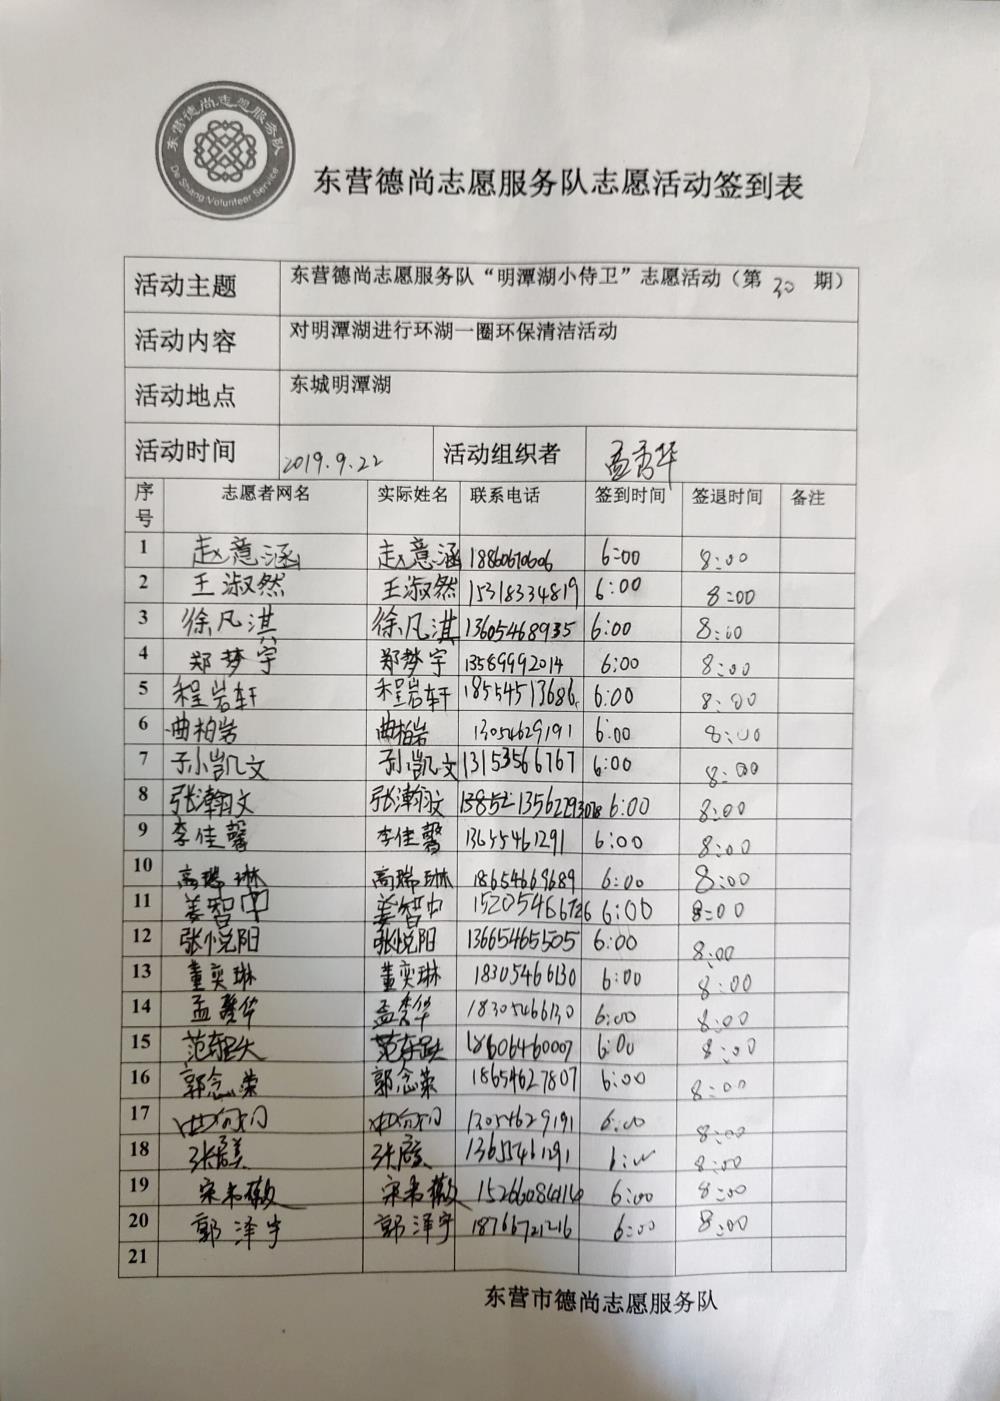 东营德尚志愿服务队
De Shang Volunteer Service
东营德尚志愿服务队志愿活动签到表
活动主题 东营德尚志愿服务队“明潭湖小侍卫”志愿活动（第 30 期）
活动内容 对明潭湖进行环湖一圈环保清洁活动
活动地点 东城明潭湖
活动时间 2019.9.22 活动组织者 孟秀华
序号 志愿者网名 实际姓名 联系电话 签到时间 签退时间 备注
1 赵意涵 赵意涵 18860670606 6:00 8:00
2 王淑然 王淑然 15318334819 6:00 8:00
3 徐凡淇 徐凡淇 13605468935 6:00 8:00
4 郑梦宇 郑梦宇 13589992014 6:00 8:00
5 程岩轩 程岩轩 18554513686 6:00 8:00
6 曲柏岩 曲柏岩 13054629191 6:00 8:00
7 孙小凯文 孙凯文 13153566767 6:00 8:00
8 张瀚文 张瀚文 6:00 8:00
9 李佳馨 李佳馨 13655461291 6:00 8:00
10 高瑞琳 高瑞琳 18654669689 6:00 8:00
11 姜智中 姜智中 15205466726 6:00 8:00
12 张悦阳 张悦阳 13665465505 6:00 8:00
13 董奕琳 董奕琳 18305466130 6:00 8:00
14 18305466130 6:00 8:00
15 18606460007 6:00 8:00
16 郭念荣 郭念荣 18654627807 6:00 8:00
17 13054629191 6:00 8:00
18 13655461291 6:00 8:00
19 6:00 8:00
20 郭泽宇 郭泽宇 18766721216 6:00 8:00
21
东营市德尚志愿服务队